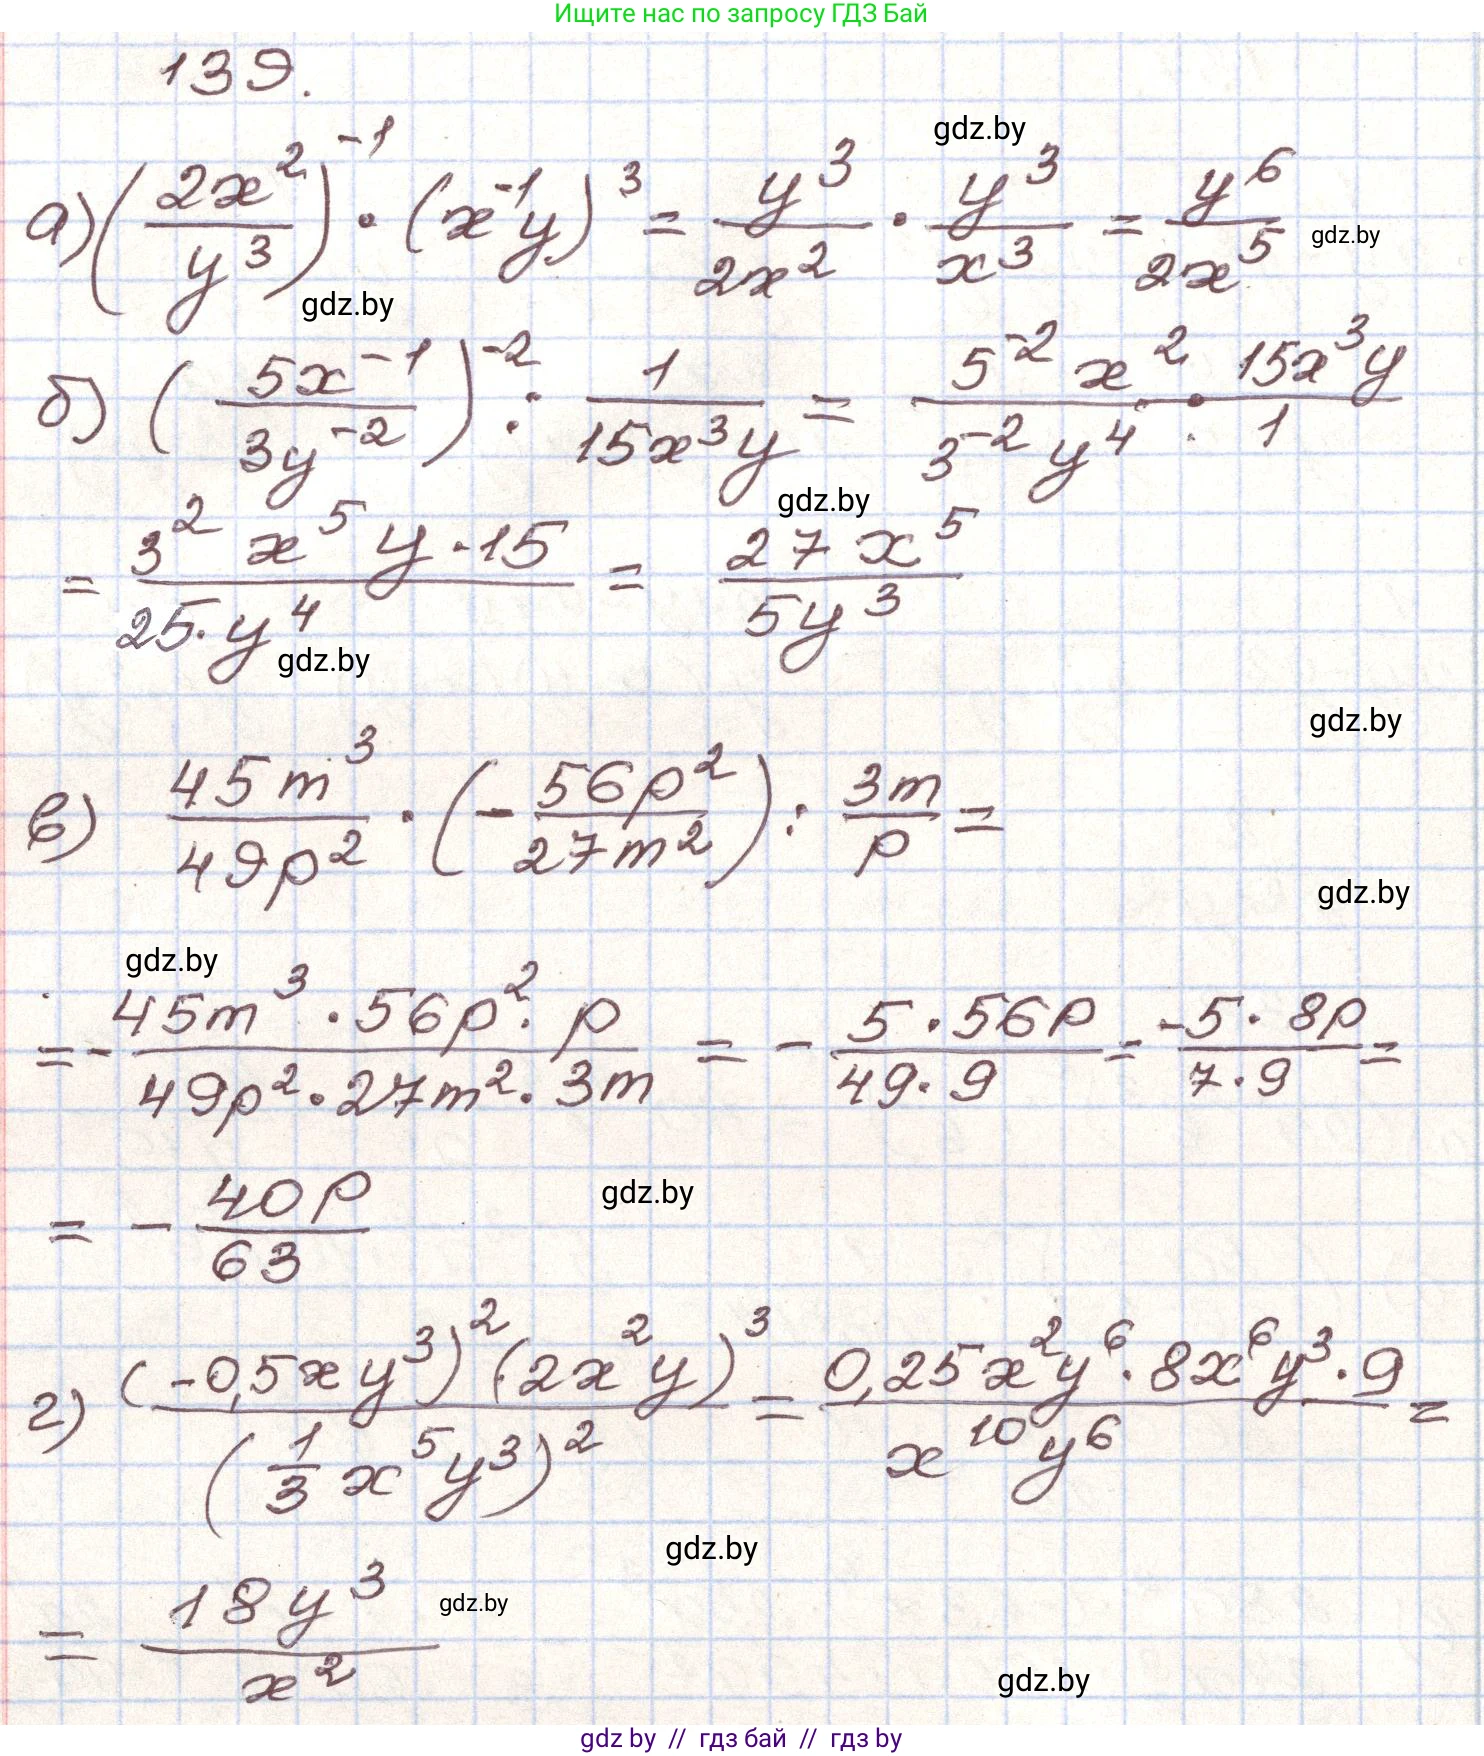 Ищите нас по запросу ГДЗ Бай
139.
gdz.by
а) (2x²/y³)⁻¹ · (x⁻¹y)³ = y³/2x² · y³/x³ = y⁶/2x⁵
gdz.by
gdz.by
б) (5x⁻¹/3y⁻²)⁻² : 1/15x³y = 5⁻²x²/3⁻²y⁴ · 15x³y/1
gdz.by
= 3²x⁵y·15/25·y⁴ = 27x⁵/5y³
gdz.by
gdz.by
в) 45m³/49p² · (-56p²/27m²) : 3m/p =
gdz.by
gdz.by
= - 45m³·56p²·p/49p²·27m²·3m = - 5·56p/49·9 = -5·8p/7·9 =
= - 40p/63
gdz.by
г) (-0,5xy³)²(2x²y)³/(1/3 x⁵y³)² = 0,25x²y⁶·8x⁶y³·9/x¹⁰y⁶ =
gdz.by
= 18y³/x²
gdz.by
gdz.by
gdz by // гдз бай // гдз by